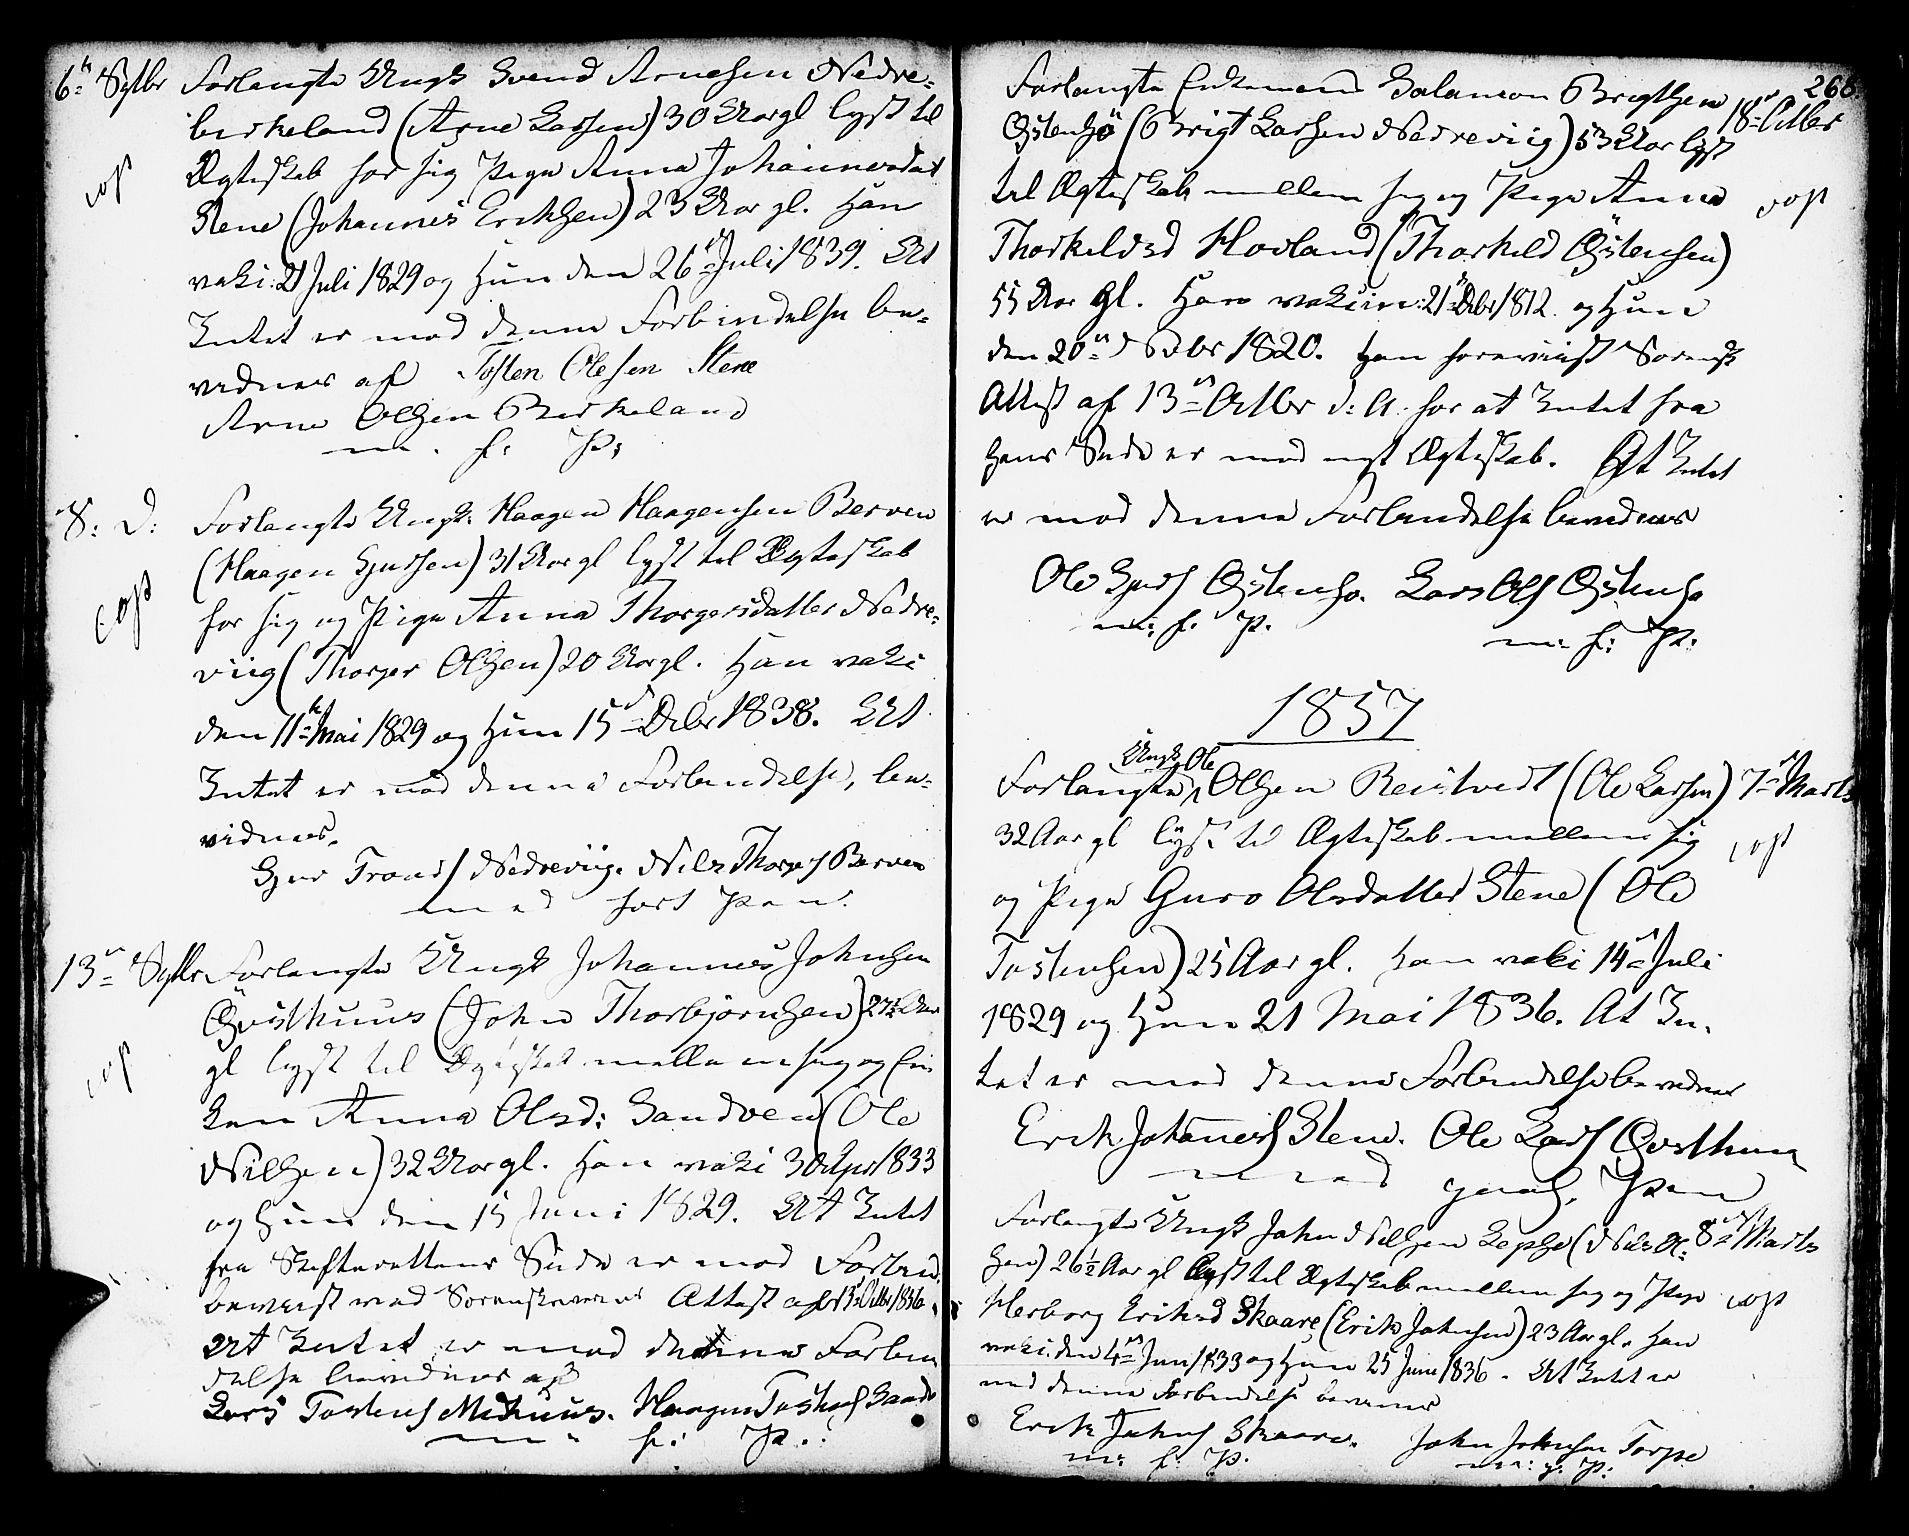 6te Septbr Forlangte Ungk Svend Arnesen Nedre-
birkeland (Arne Larsen) 30 Aar gl lyst til
cop
Ægteskab for sig Pige Anna Johannesdat
Stene (Johannes Erichsen) 23 Aar gl. Han
vaki: 21 Juli 1829 og Hun den 26de Juli 1839. At
Intet er mod denne Forbindelse be-
vidnes af Tosten Olesen Stene
Arne Olsen Birkeland
m. f. P.
S: D: Forlangte Ungk: Haagen Haagensen Berven
(Haagen Gjursen) 31 Aar gl lyst til Ægteskab
cop
for sig og Pige Anna Thorgersdatter Nedre-
viig (Thorger Olsen) 20 Aar gl. Han vaki
den 11te Mai 1829 og Hun 15de Debr 1838. At
Intet er mod denne Forbindelse, be-
vidnes.
Gjur Troeds Nedreviig. Nils Thorgs Berven
medført Pen.
13de Septbr Forlangte Ungk Johannes Johnsen
Qvisthuus (John Thorbjørnsen) 23½ Aar
gl lyst til Ægteskab mellem sig og En-
cop
ken Anna Olsd: Sandven (Ole
Nilsen) 32 Aar gl. Han vaki 30 Apr 1833
og Hun den 15 Juni 1829. At Intet
fra Skifterettens Side er mod Forbin.
beviist ved Sorenskriverens Attest af 13 Octbr 1836.
At Intet er mod denne Forbin
delse bevidnes af
Lars Tostens Mehuus. Haagen Tostens Sandv
m. f. P.
268.
Forlangte Enkemand Salamon Brigtsen 18de Octbr
Østensø (Brigt Larsen Nedreviig) 53 Aar lyst
til Ægteskab mellem sig og Pige Anna cop
Thorkelsd Hovland (Thorkeld Østensen)
55 Aar gl. Han vakcin: 21de Debr 1812. og Hun
den 20de Novbr 1820. Han foreviist Sorensk
Attest af 13de Octbr d: A. for at Intet fra
hans Side er mod nyt Ægteskab. At Intet
er mod denne Forbindelse bevidnes
Ole Gjurs Østensø. Lars Ols Østensø
m. f. P. m. f. P.
1857
Forlangte Ungk Ole Olsen Reistvedt (Ole Larsen) 7de Marts
32 Aar gl lyst til Ægteskab mellem sig cop
og Pige Guro Olsdatter Stene (Ole
Tostensen) 25 Aar gl. Han vaki 14de Juli
1829 og Hun 21 Mai 1836. At In-
tet er mod denne Forbindelse bevidnes
Erik Johannes Stene. Ole Lars Qvisthuus
med Pen
Forlangte Ungk John Nilsen Lepsø (Nils Ol- 8de Marts
sen) 26½ Aar gl lyst til Ægteskab mellem sig og Pige cop
Herborg Eriksd Skaare (Erik Johnsen) 23 Aar gl. Han
vaki. den 4de Jun 1833 og Hun 25 Juni 1836. At Intet er
mod denne Forbindelse bevidnes
Erik Johns Skaare. John Johnsen Torpe
m. f. P. m. f. P.